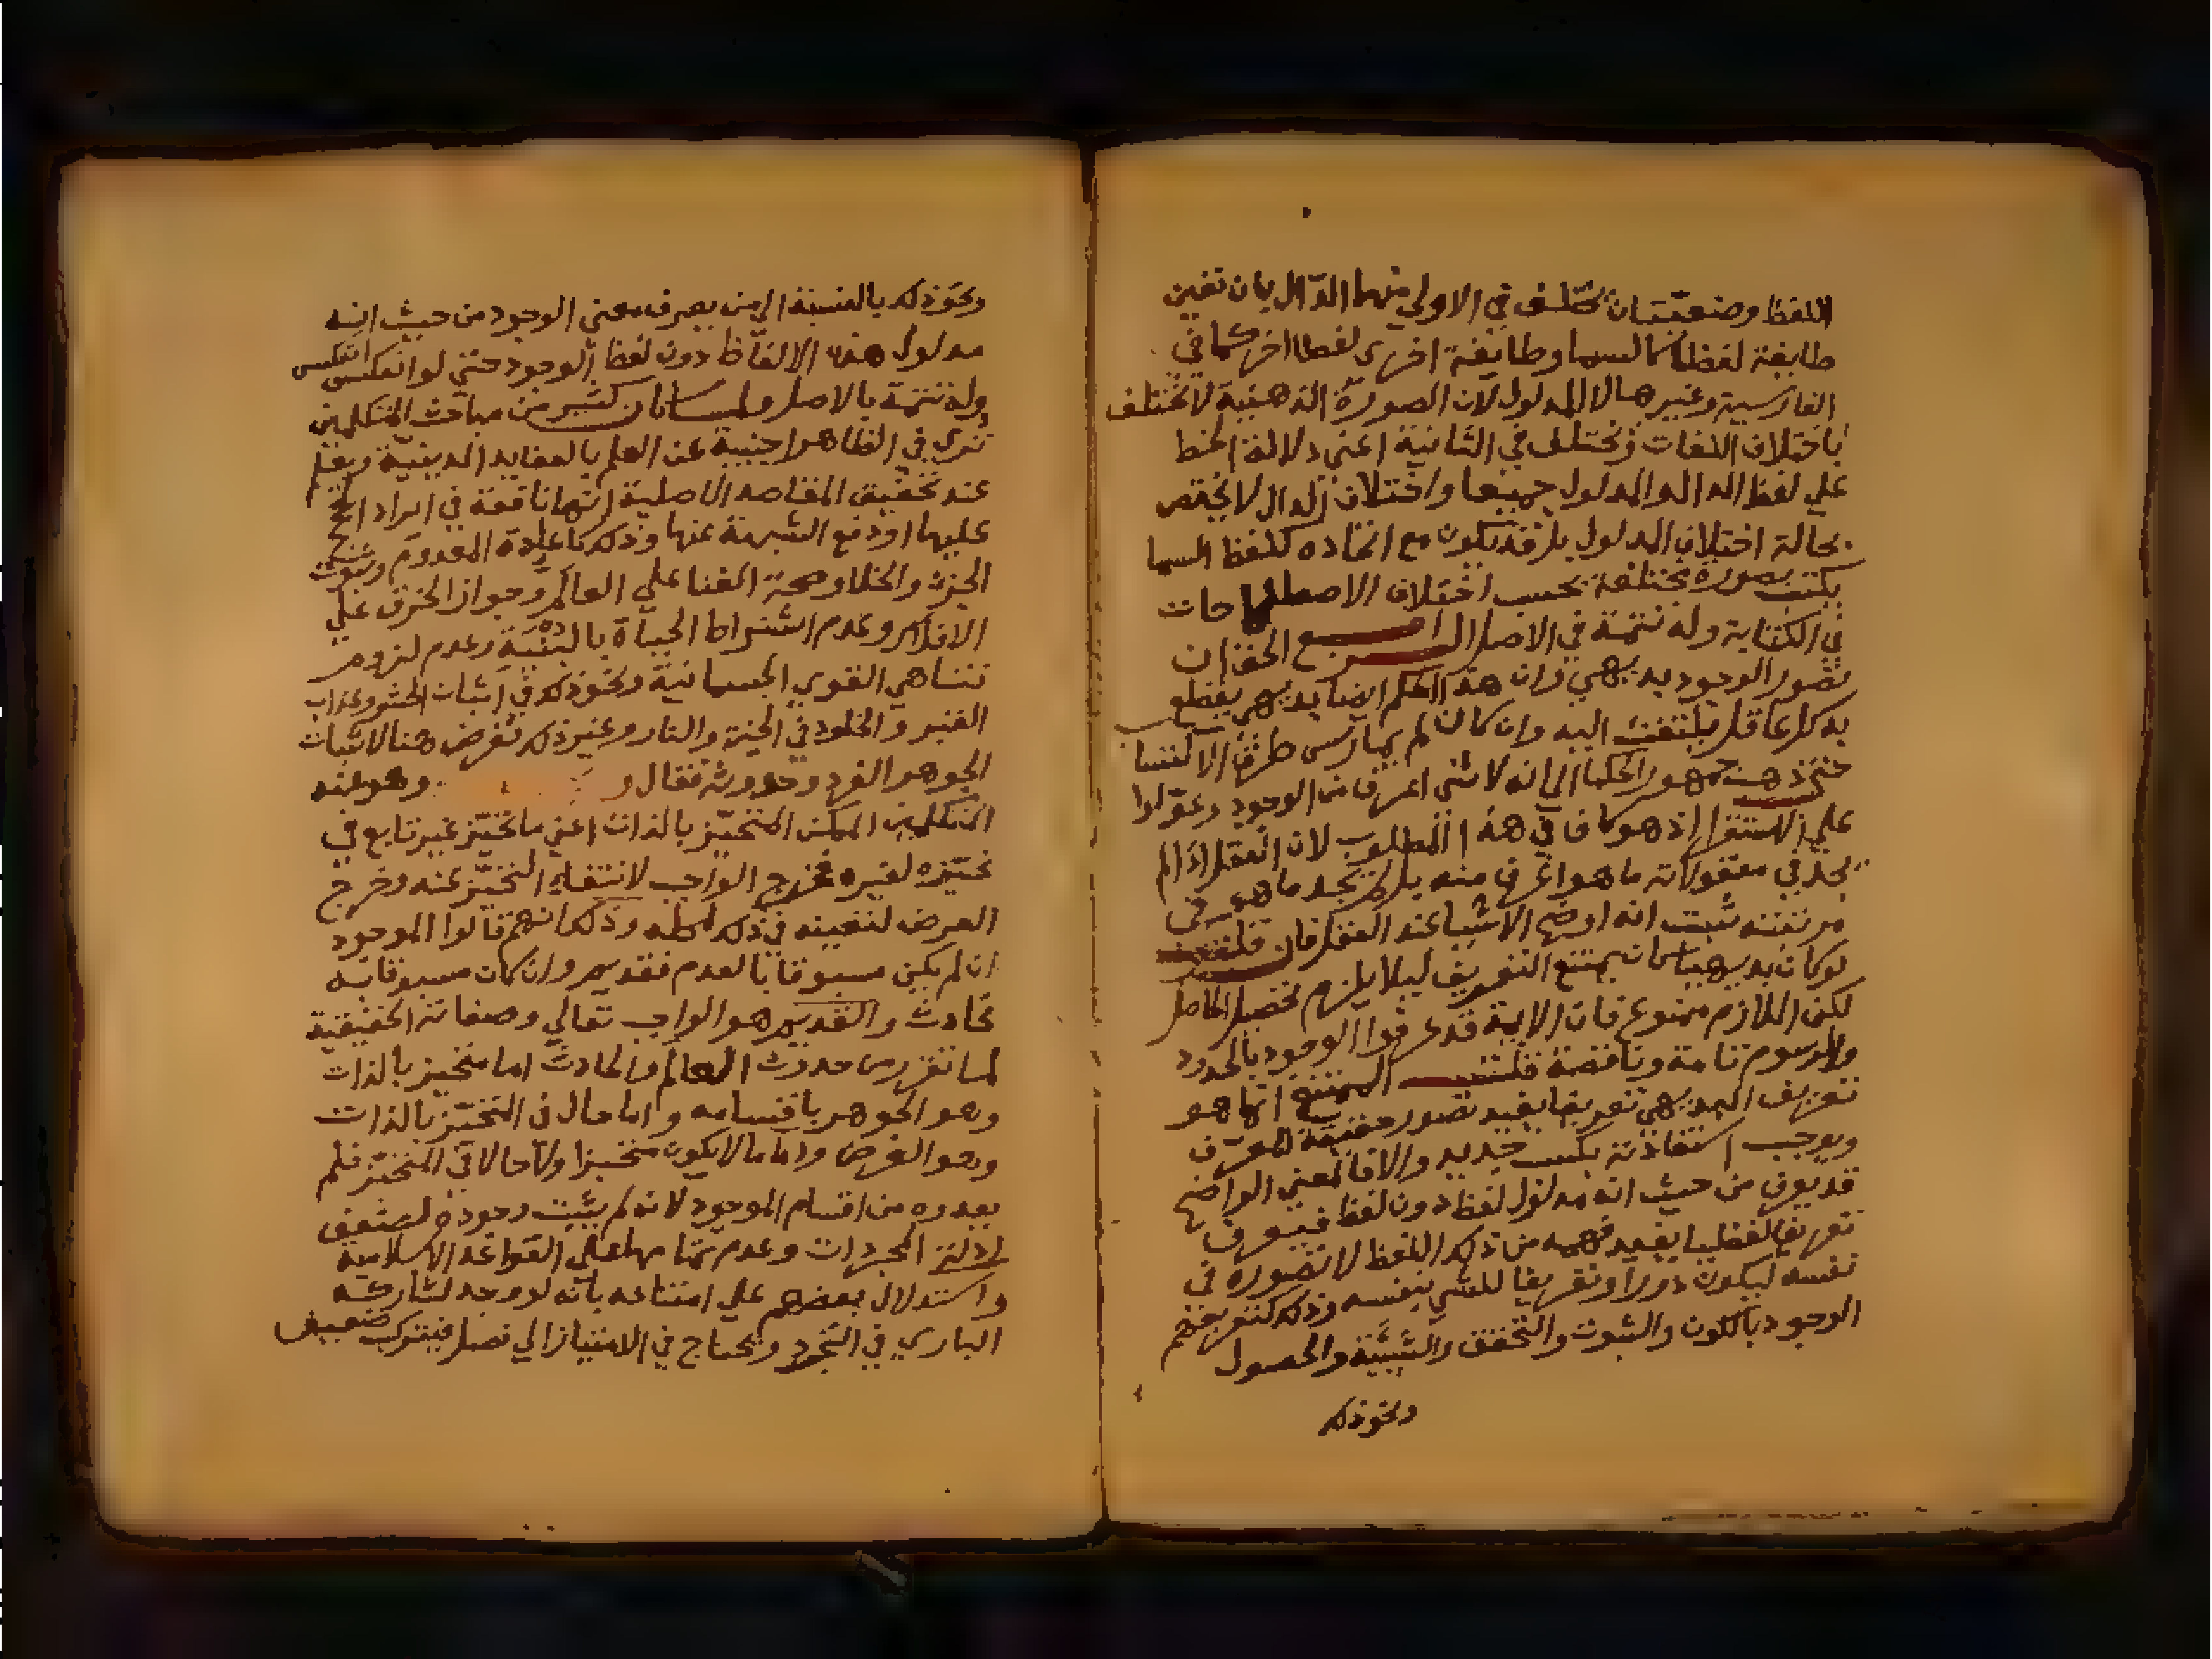 اللفظ وضعيتان تختلف في الاولي منهما الدّال بان تعين
طايفة لفظا كالسما وطايفة اخرى لفظا اخر كما في
الفارسية وغيرها لا المدلول لان الصورة الذهنية لا تختلف
باختلاف اللغات وتختلف في الثانية اعني دلالة الخط
علي لفظ الدال والمدلول جميعا واختلاف الدال لا يختص
بحالة اختلاف المدلول بل قد يكون مع اتحاده كلفظ السما
يكتب بصورة مختلفة بحسب اختلاف الاصطلاحات
في الكتابة وله تتمة في الاصل الرابع الحق ان
تصور الوجود بديهي وان هذا الحكم ايضا بديهي يقطع
به كل عاقل يلتفت اليه وان كان لم يمارس طرق الاكتساب
حتي ذهب جمهور الحكما الي انه لا شي اعرف من الوجود وعوّلوا
علي الاستقرا اذ هو كاف في هذا المطلوب لان العقل اذا لم
يجد في معقولاته ما هو اعرف منه بل لم يجد ما هو في
مرتبته ثبت انه اوضح الاشيا عند العقل فان قلت
لو كان بديهيا لامتنع التعريف ليلا يلزم تحصيل الحاصل
لكن اللازم ممنوع فان الايمة قد عرفوا الوجود بالحدود
والرسوم تامة وناقصة قلت الممتنع انما هو
تعريف البديهي تعريفا يفيد تصور حقيقة المعرف
ويوجب استفادته بكسب جديد والا فالمعني الواضح
قد يعرف من حيث انه مدلول لفظ دون لفظ فيعرف
تعريفا لفظيا يفيد فهمه من ذلك اللفظ لا تصوره في
نفسه ليكون دورا وتعريفا للشي بنفسه وذلك كتعريفهم
الوجود بالكون والثبوت والتحقق والشيئية والحصول
ونحو ذلك
ونحو ذلك بالنسبة الي من يعرف معني الوجود من حيث انه
مدلول هذه الالفاظ دون لفظ الوجود حتي لو انعكس انعكس
وله تتمة بالاصل ولما كان كثير من مباحث المتكلمين
تري في الظاهر اجنبية عن العلم بالعقايد الدينية ويعلم
عند تحقيق المقاصد الاصلية انها نافعة في ايراد الحجج
عليها او دفع الشبهة عنها وذلك كاعادة المعدوم وثبوت
الجزء والخلا وصحة الفنا علي العالم وجواز الخرق علي
الافلاك وعدم اشتراط الحياة بالبُنْيَة وعدم لزوم
تناهي القوي الجسمانية ونحو ذلك في اثبات الحشر وعذاب
القبر والخلود في الجنة والنار وغير ذلك تعرض هنا لاثبات
الجوهر الفرد وحدوثه فقال و وهو عند
المتكلمين الممكن المتحيّز بالذات اعني ما تحيّز غير تابع في
تحيّزه لغيره فخرج الواجب لانتفاء التحيّز عنه وخرج
العرض لتبعيته في ذلك لمحله وذلك انهم قالوا الموجود
ان لم يكن مسبوقا بالعدم فقديم وان كان مسبوقا به
فحادث والقديم هو الواجب تعالي وصفاته الحقيقية
لما تقرر من حدوث العالم والحادث اما متحيز بالذات
وهو الجوهر باقسامه واما حال في المتحيّز بالذات
وهو العرض واما ما لا يكون متحيزا ولا حالا في المتحيّز فلم
يعدوه من اقسام الموجود لانه لم يثبت وجوده لضعف
ادلة المجردات وعدم تمامها علي القواعد الاسلامية
واستدلال بعضهم علي امتناعه بانه لو وجد لشاركه
الباري في التجرد ويحتاج في الامتياز الي فصل فيتركب ضعيف